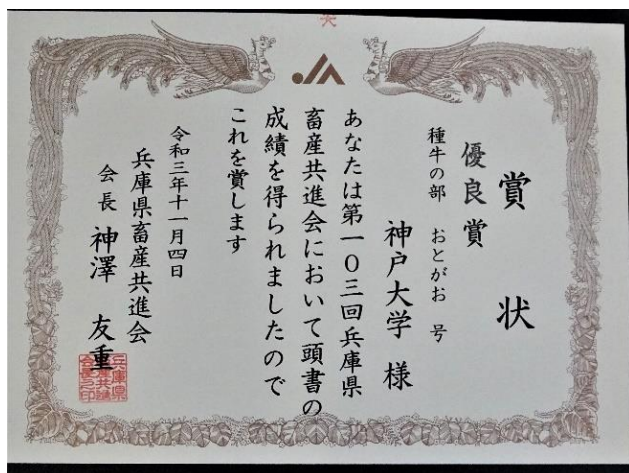 賞状
優良賞
種牛の部 おとがお 号
神戸大学 様
あなたは第一〇三回兵庫県
畜産共進会において頭書の
成績を得られましたので
これを賞します
令和三年十一月四日
兵庫県畜産共進会
会長 神澤 友重
兵庫県
畜産共進
会長之印